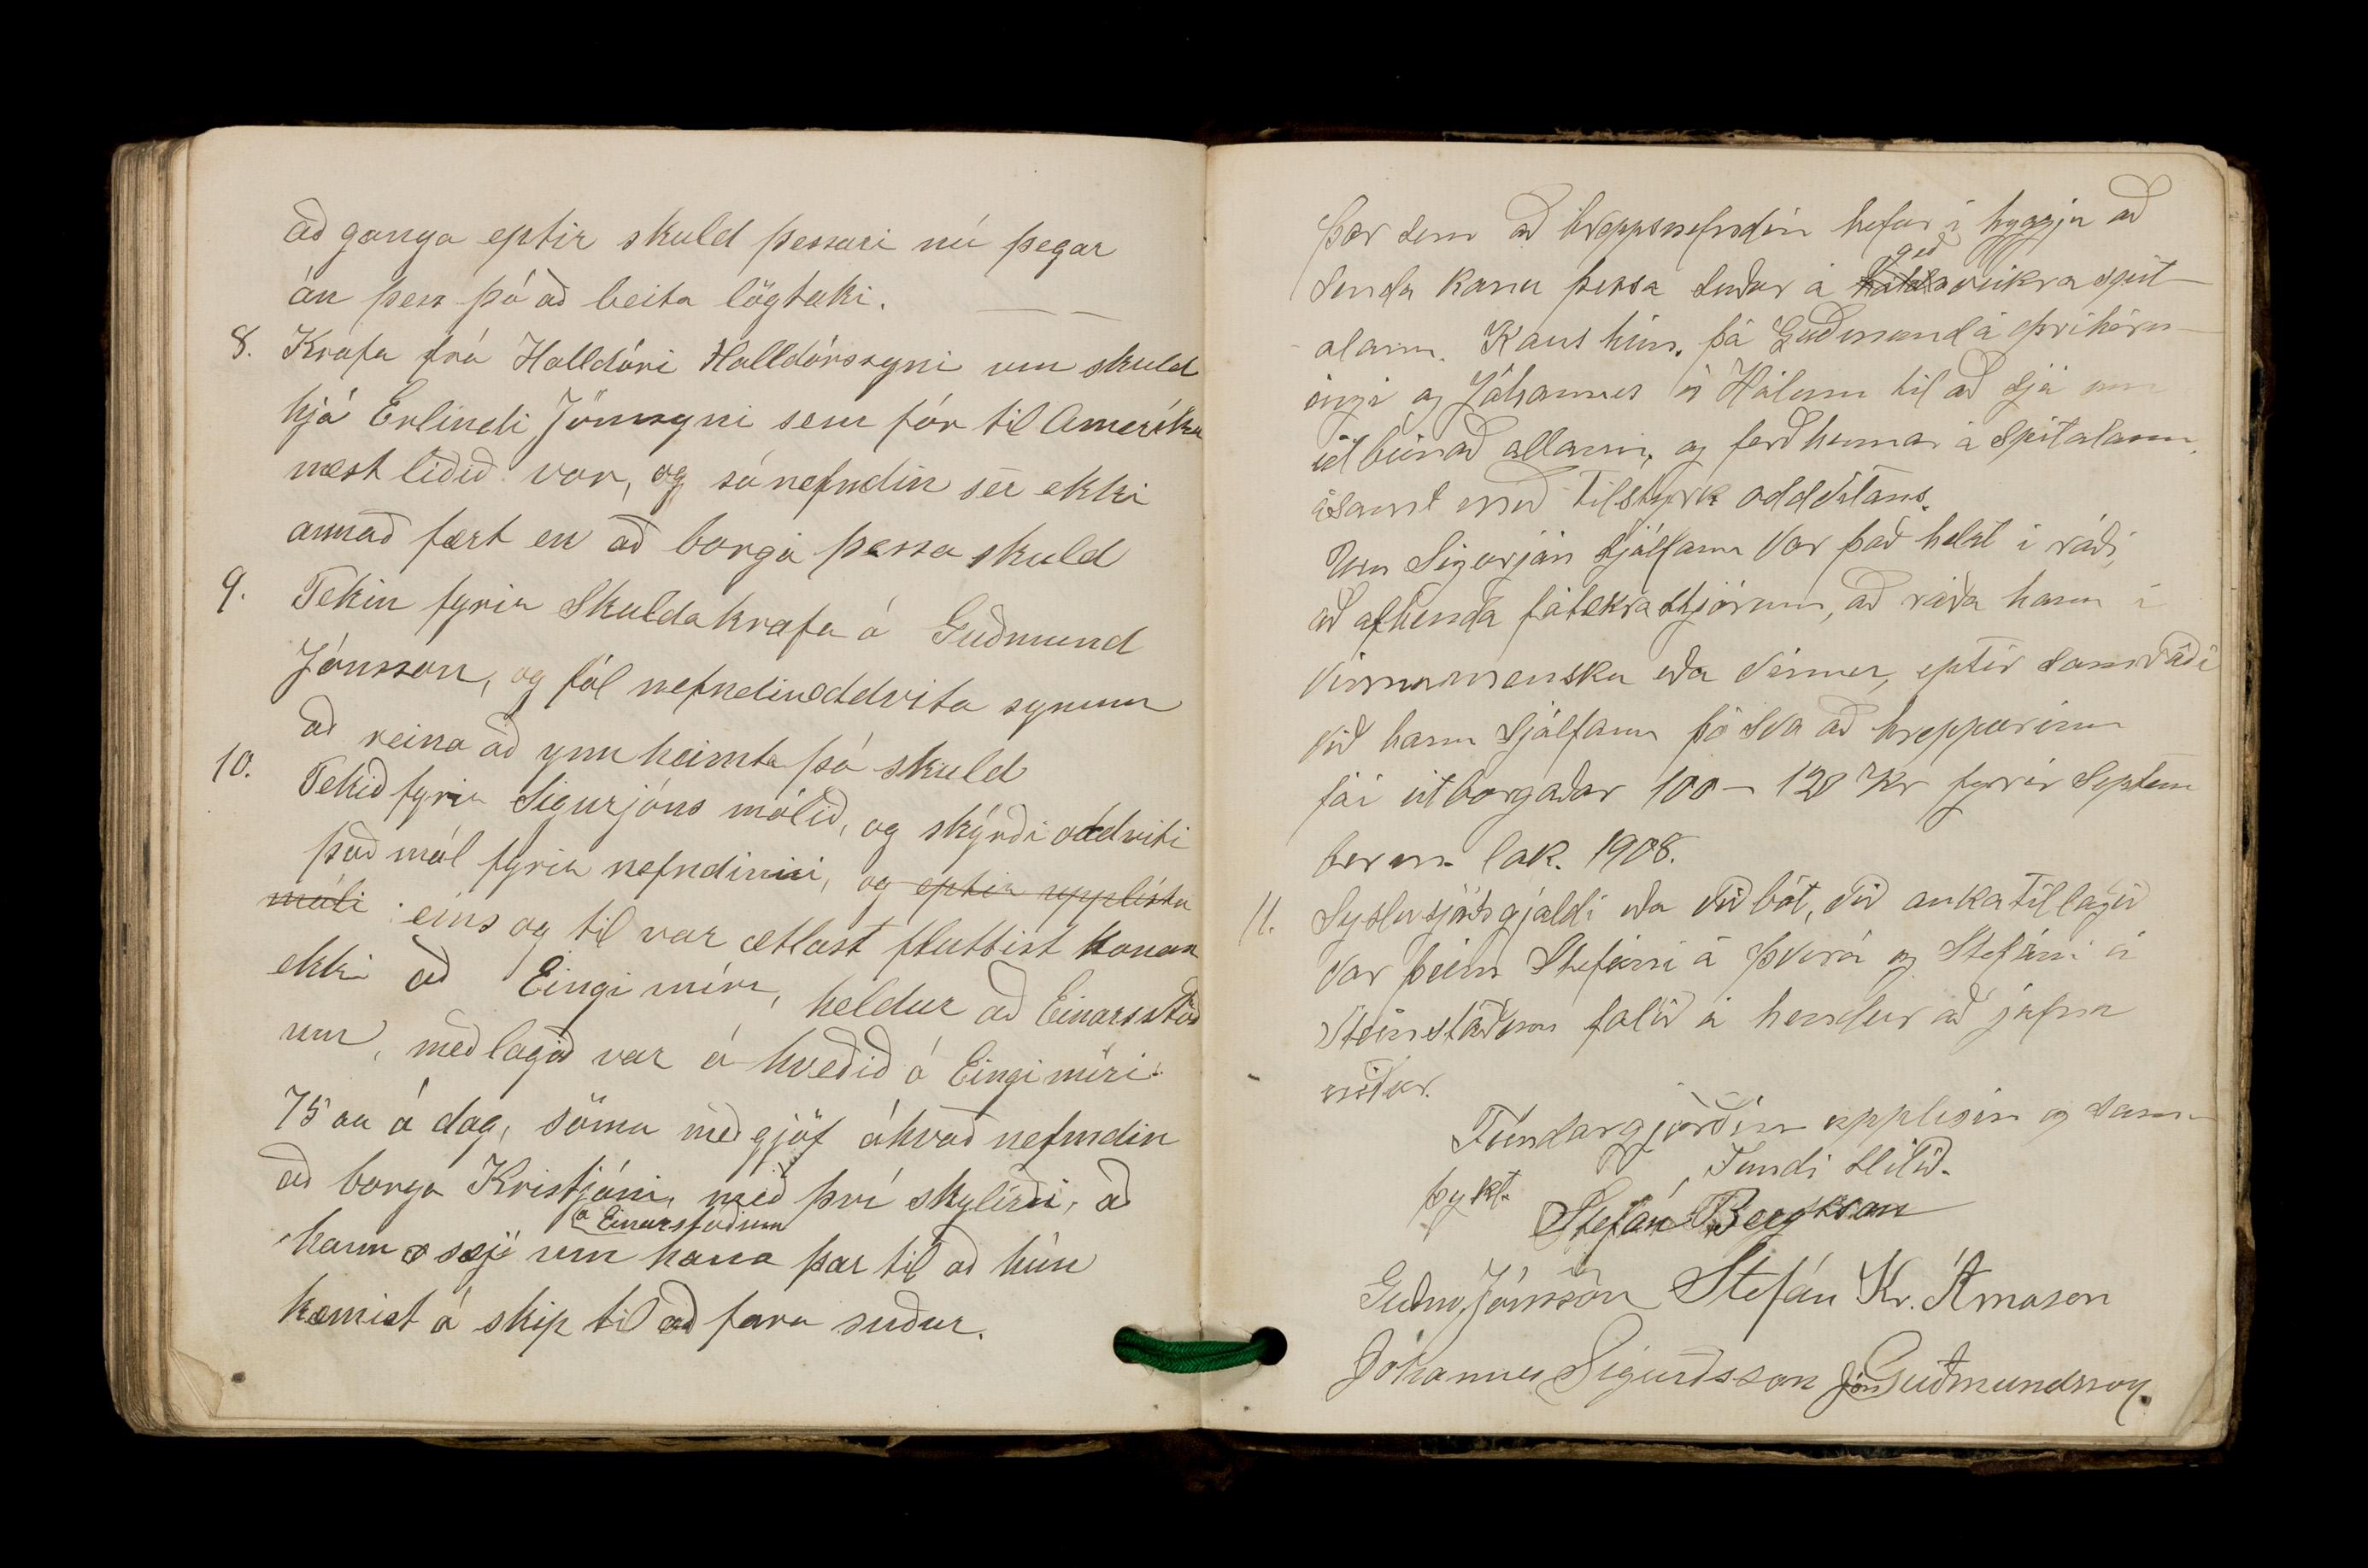 að ganga eptir skuld þessari nú þegar
án þess þó að beita lögtaki.
8. Krafa frá Halldóri Halldórssyni um skuld
hjá Erlindi Jónssyni sem fór til Ameríku
næst liðið vor, og sá nefndin sér ekki
annað fært en að borga þessa skuld
9. Tekin fyrir Skuldakrafa á Guðmund
Jónsson, og fól nefndin oddvita synum
að reina að ynnheimta þá skuld
10. Tekið fyrir Sigurjóns málið, og skýrði oddviti
það mál fyrir nefndinni, og eptir upplístu
máli eins og til var ætlast fluttist konan
ekki að Eingimíri, heldur að Einarsstöð
um, meðlagið var á kveðið á Eingimíri
75 au á dag, sömu meðgjöf ákvað nefndin
að borga Kristjáni, með því skylirði, að
á Einarsstöðum
hann sæji um hana þar til að hún
kæmist á skip til að fara suður.
Þar sem að hreppsnefndin hefur í hyggju að
geð
senda konu þessa suður á veikraspít-
alann. Kaus hún. þá Guðmund á Þríhirn-
ingi og Jóhannes á Hálsm til að sjá um
útbúnað allann, og ferð hennar á Spítalann,
ásamt með tilstyrk oddvitans.
Um Sigurjón sjálfann var það helst í ráði,
að afhenda fátækrastjórnum, að ráða hann í
vinnumensku eða vinnu, eptir samráði
við hann sjálfann þó svo að hreppurinn
fái útborgaðar 100 – 120 Kr fyrir Septem
berm. lok. 1908.
11. Syslusjóðsgjaldi eða viðbót, við aukatillagið
var þeim Stefáni á Þverá og Stefáni á
Steinstöðum falið á hendur að jafna
niður.
Fundargjörðin upplesin og sam-
þykt. Fundi slitið.
Stefán Bergsson
Guðm. Jónsson Stefán Kr. Árnason
Jóhannes Sigurðsson Jón Guðmundsson.